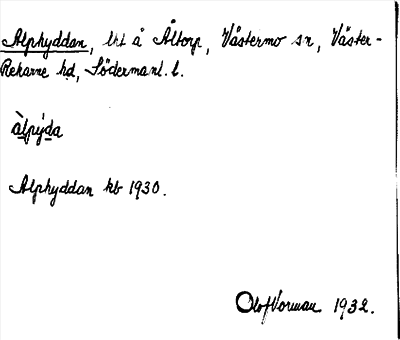 Alphyddan, lht å Åltorp, Västermo sn, Väster-
Rekarne hd, Södermanl. l.
àlpýda
Alphyddan kb 1930.
Olof Vorman 1932.